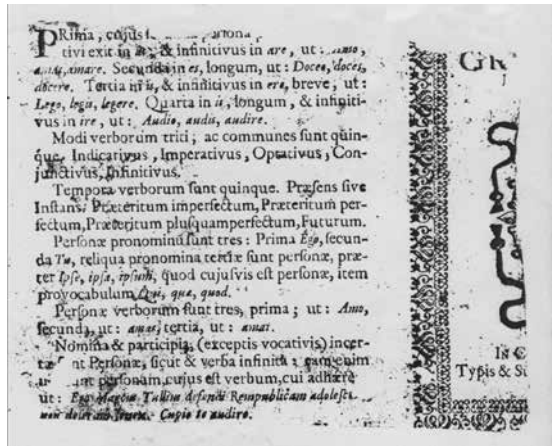 PRima, cujus
tivi exit in as, & infinitivus in are, ut: Amo,
amas, amare. Secunda in es, longum, ut: Doceo, doces,
docere. Tertia in is, & infinitivus in ere, breve, ut:
Lego, legis, legere. Quarta in is, longum, & infiniti-
vus in ire, ut: Audio, audis, audire.
Modi verborum triti; ac communes sunt quin-
que. Indicativus, Imperativus, Optativus, Con-
junctivus, Infinitivus.
Tempora verborum sunt quinque. Præsens sive
Instans. Præteritum imperfectum, Præteritum per-
fectum, Præteritum plusquamperfectum, Futurum.
Personæ pronominū sunt tres: Prima Ego, secun-
da Tu, reliqua pronomina tertiæ sunt personæ, præ-
ter Ipse, ipsa, ipsum, quod cujusvis est personæ, item
provocabulum qua, quod.
Personæ verborum sunt tres, prima; ut: Amo,
secunda, ut: amas, tertia, ut: amat.
Nomina & participia, (exceptis vocativis) incer-
nt Personæ, sicut & verba infinita: eam enim
personam, cujus est verbum, cui adhære
ut: Ego Marcus Tullius defendi Rempublicam adolesc
non deseram Cupio te audire.
GR
In C
Typis & S